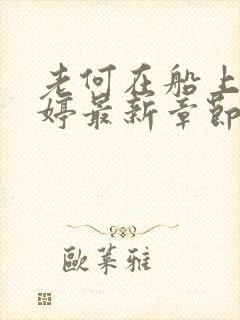 老何在船上
婷最新章節
歐萊雅